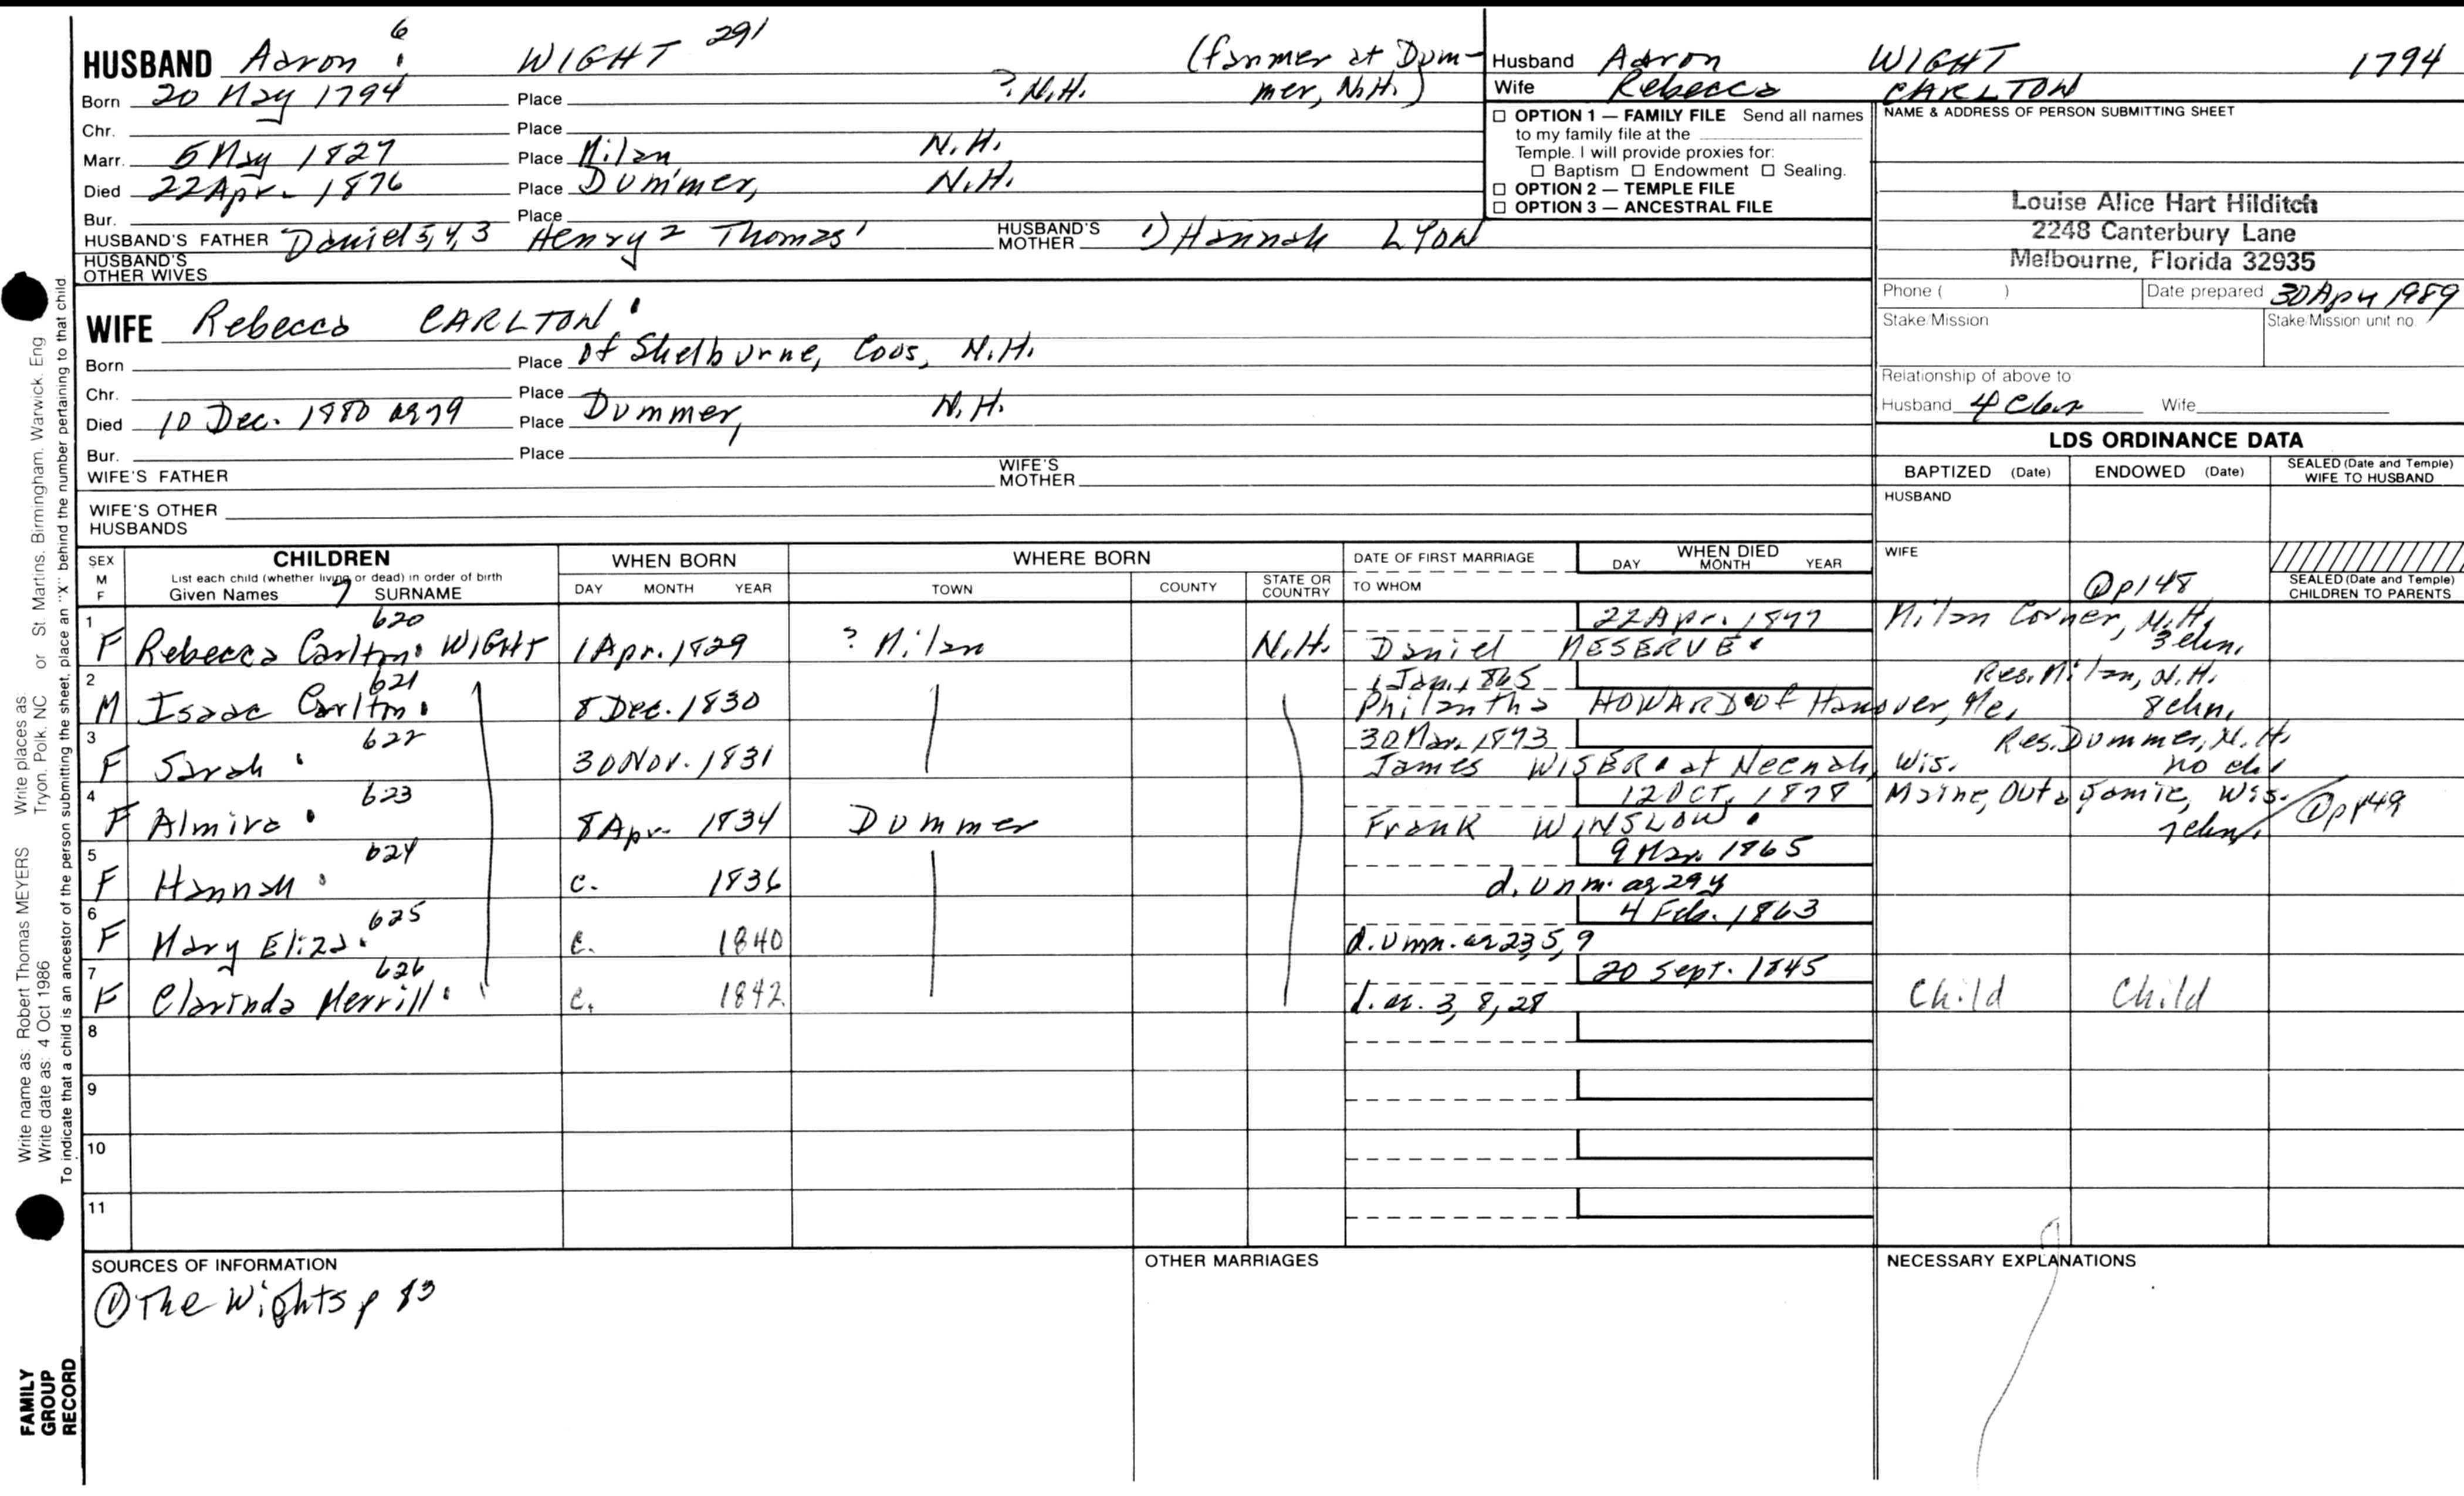 HUSBAND Aaron 6 WIGHT 291 (farmer at Dum-
Born 20 May 1794 Place ? N.H. mer, N.H.)
Chr. Place
Marr. 5 May 1827 Place Milan N.H.
Died 22 Apr. 1876 Place Dummer, N.H.
Bur. Place
HUSBAND'S FATHER Daniel 5,4,3 Henry 2 Thomas 1 HUSBAND'S MOTHER 1) Hannah LYON
HUSBAND'S OTHER WIVES
WIFE Rebecca CARLTON
Born Place of Shelburne, Coos, N.H.
Chr. Place
Died 10 Dec. 1880 ae 79 Place Dummer, N.H.
Bur. Place
WIFE'S FATHER WIFE'S MOTHER
WIFE'S OTHER HUSBANDS
Husband Aaron WIGHT 1794
Wife Rebecca CARLTON
☐ OPTION 1 — FAMILY FILE Send all names
to my family file at the
Temple. I will provide proxies for:
☐ Baptism ☐ Endowment ☐ Sealing.
☐ OPTION 2 — TEMPLE FILE
☐ OPTION 3 — ANCESTRAL FILE
NAME & ADDRESS OF PERSON SUBMITTING SHEET
Louise Alice Hart Hilditch
2248 Canterbury Lane
Melbourne, Florida 32935
Phone ( ) Date prepared 30 Apr 1989
Stake/Mission Stake/Mission unit no.
Relationship of above to
Husband Wife
LDS ORDINANCE DATA
BAPTIZED (Date) ENDOWED (Date) SEALED (Date and Temple) WIFE TO HUSBAND
HUSBAND
WIFE
p148
SEALED (Date and Temple) CHILDREN TO PARENTS
SEX M F
CHILDREN
List each child (whether living or dead) in order of birth
Given Names 7 SURNAME
WHEN BORN
DAY MONTH YEAR
WHERE BORN
TOWN COUNTY STATE OR COUNTRY
DATE OF FIRST MARRIAGE
TO WHOM
WHEN DIED
DAY MONTH YEAR
1 620 22 Apr. 1877 Milan Corner, N.H.
F Rebecca Carlton WIGHT 1 Apr. 1829 ? Milan N.H. Daniel MESERVE 3 chn.
2 621 1 Jan. 1865 Res. Milan, N.H.
M Isaac Carlton 8 Dec. 1830 Philantha HOWARD of Hanover, Me. 8 chn.
3 622 30 Mar. 1873 Res. Dummer, N.H.
F Sarah 30 Nov. 1831 James WISER at Neenah, Wis. no chl
4 623 12 Oct. 1878 Maine, Outagamie, Wis. p149
F Almira 8 Apr. 1834 Dummer Frank WINSLOW 7 chn.
5 624 9 Mar. 1865
F Hannah c. 1836 d. unm. ae 29 y
6 625 4 Feb. 1863
F Mary Eliza c. 1840 d. unm. ae 23, 5, 9
7 626 20 Sept. 1845
F Clarinda Merrill c. 1842 d. ae. 3, 8, 28 Child Child
8
9
10
11
SOURCES OF INFORMATION
① The Wights p 83
OTHER MARRIAGES
NECESSARY EXPLANATIONS
Write name as: Robert Thomas MEYERS Write places as: Tryon, Polk, NC or St. Martins, Birmingham, Warwick, Eng
Write date as: 4 Oct 1986
To indicate that a child is an ancestor of the person submitting the sheet, place an "X" behind the number pertaining to that child
FAMILY
GROUP
RECORD